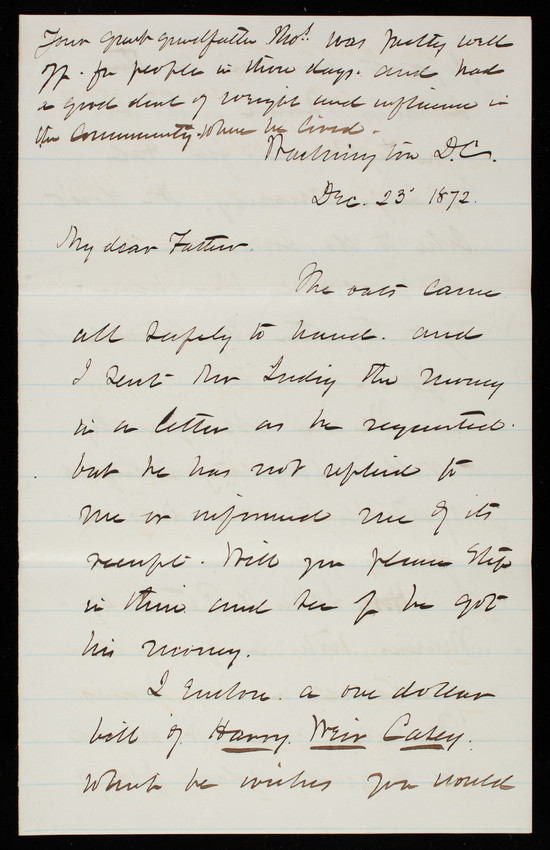 Your great grandfather Thos. was pretty well
off. for people in those days. and had
a good deal of weight and influence in
the community where he lived.
Washington D.C.
Dec. 23 1872.
My dear Father.
The oats came
all safely to hand. and
I sent Mr Ludig the money
in a letter as he requested.
but he has not replied to
me or informed me of its
receipt. Will you please step
in there and see if he got
his money.
I enclose a one dollar
bill of Harry Weir Casey.
which he wishes you would